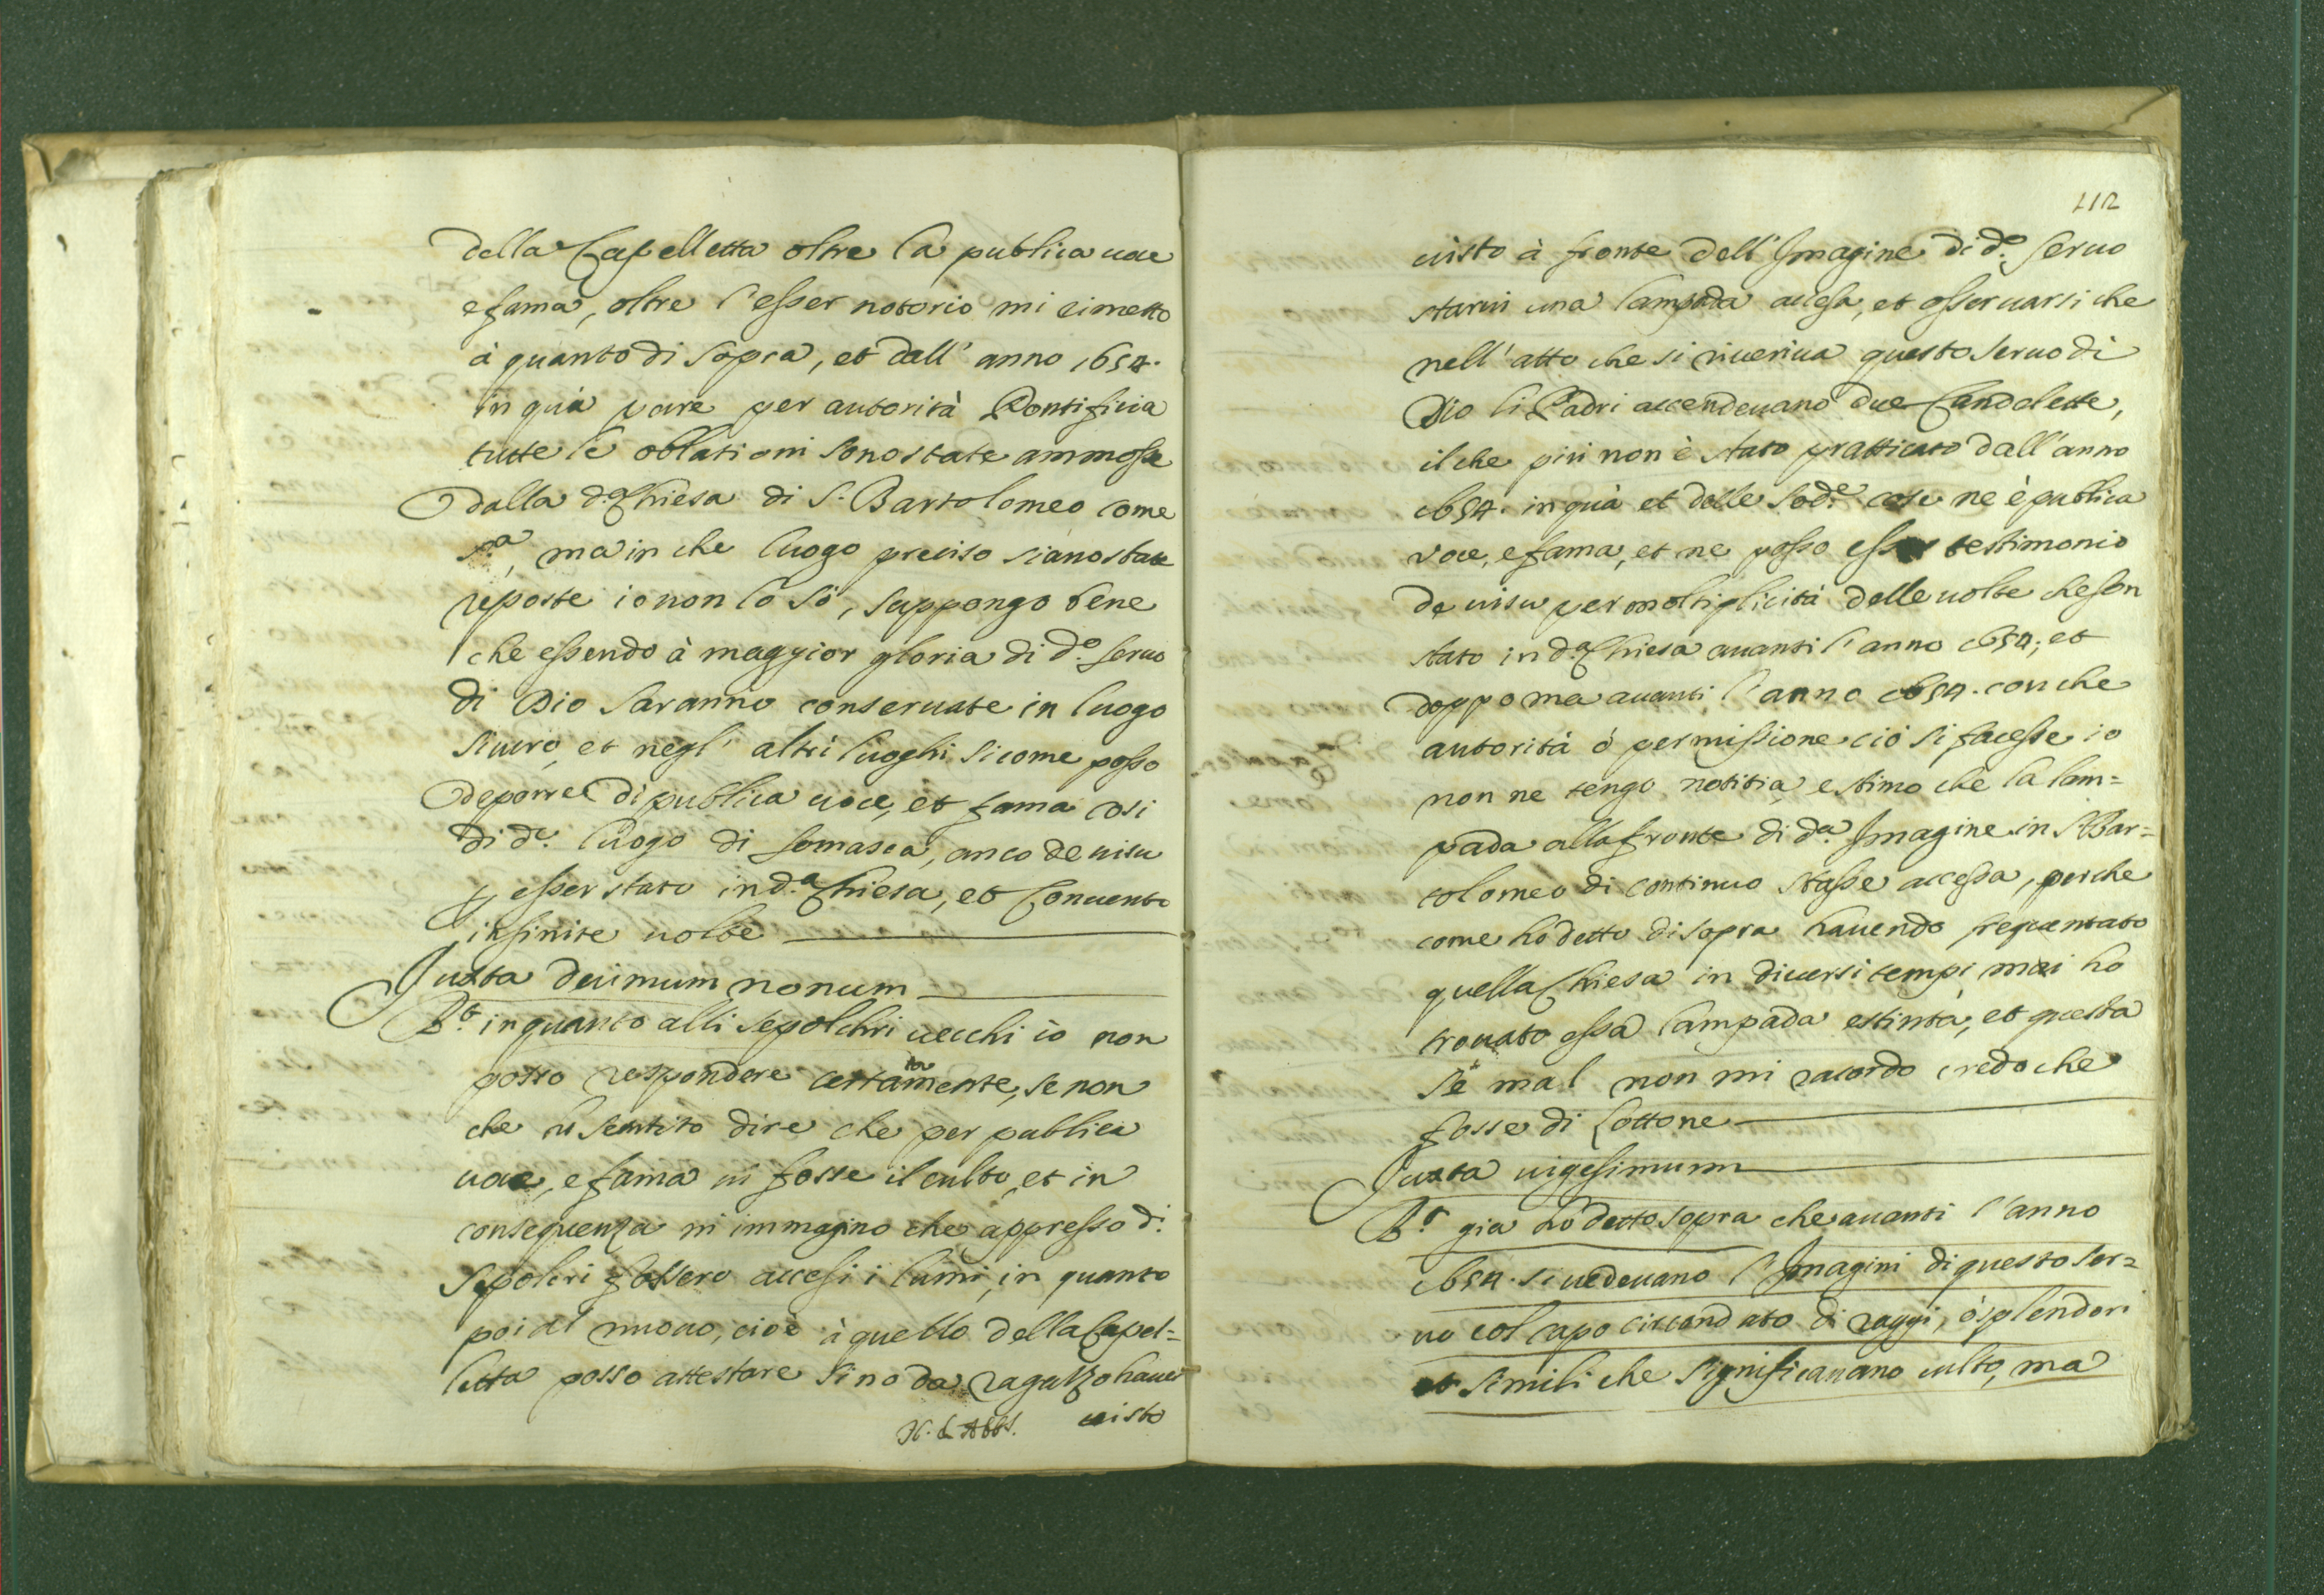 della Capelletta oltre la publica uoce
e fama, oltre l'esser notorio mi rimetto
à quanto di sopra, et dall' anno 1654.
in quà pare per autorità Pontificia
tutte le oblationi sono state ammosse
dalla d.ª Chiesa di S. Bartolomeo come
s.ª, ma in che luogo preciso siano state
reposte io non lo sò, suppongo bene
che essendo à maggior gloria di d.º Seruo
di Dio saranno conseruate in luogo
sicuro, et negl' altri luoghi sicome posso
deporre di publica uoce, et fama così
di d.º luogo di Somasca, anco de uisu
p esser stato in d.ª Chiesa, et Conuento
infinite uolte
Juxta decimum nonum
R.t inquanto alli sepolchri uecchi io non
posso respondere certamente, se non
che hò sentito dire che per publica
uoce, e fama ui fosse il culto, et in
consequenza mi immagino che appresso d.i
Sepolcri fossero accesi i lumi, in quanto
poi al nuouo, cioè à quello della Capel=
letta posso attestare sino da ragazzo hauer
uisto
112
uisto à fronte dell' Imagine di d.º Seruo
starui una lampada accesa, et osseruarsi che
nell' atto che si riueriua questo Seruo di
Dio li Padri accendeuano due Candelette,
il che più non è stato pratticato dall' anno
1654. in quà et delle sod.e cose ne è publica
voce, e fama, et ne posso esser testimonio
de uisu per moltiplicità delle uolte che son
stato in d.ª Chiesa auanti l'anno 1654; et
doppo ma auanti l'anno 1654. con che
autorità ò permissione ciò si facesse io
non ne tengo notitia, e stimo che la lam=
pada alla fronte di d.ª Imagine in S. Bar=
tolomeo di continuo stasse accessa, perche
come hò detto di sopra hauendo frequentato
quella Chiesa in diuersi tempi mai ho
trouato essa lampada estinta, et questa
se mal non mi racordo credo che
fosse di Lottone
Juxta uigesimum
R.t gia hò detto sopra che auanti l'anno
1654. si uedeuano l'Imagini di questo Ser=
uo col capo circondato di raggi, ò splendori
et simili che significauano culto, ma